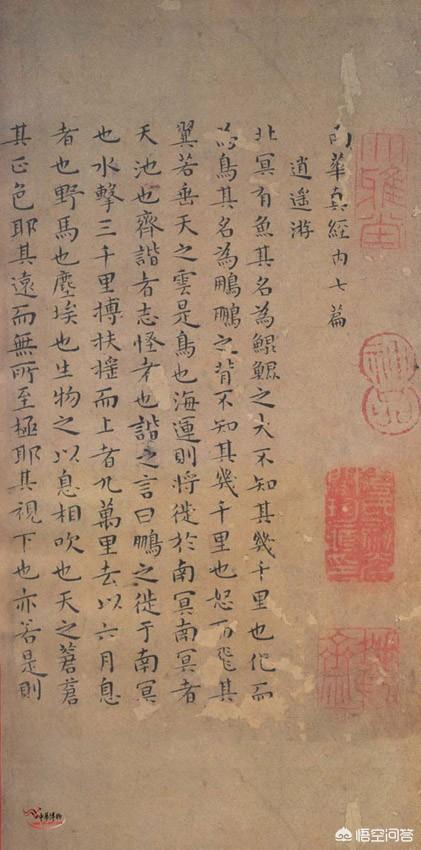 南華真經內七篇
逍遙游
北冥有魚其名為鯤鯤之大不知其幾千里也化而
為鳥其名為鵬鵬之背不知其幾千里也怒而飛其
翼若垂天之雲是鳥也海運則將徙於南冥南冥者
天池也齊諧者志怪者也諧之言曰鵬之徙于南冥
也水擊三千里摶扶搖而上者九萬里去以六月息
者也野馬也塵埃也生物之以息相吹也天之蒼蒼
其正色耶其遠而無所至極耶其視下也亦若是則
大雅堂
神品
悟空问答